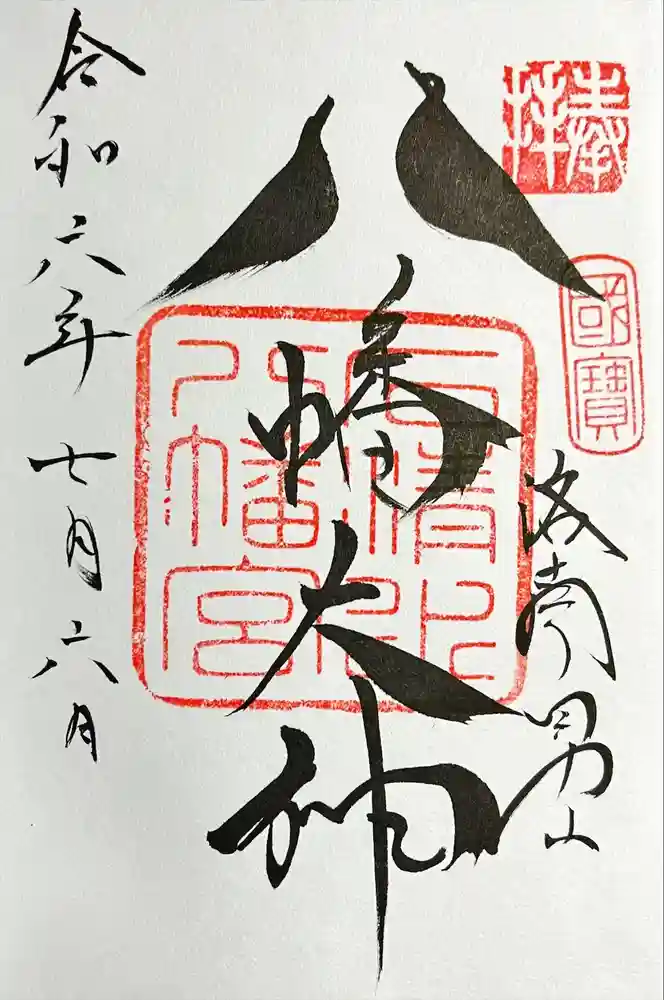 奉拝
國寶
洛南男山
八幡大神
石清水
八幡宮
令和六年七月六日